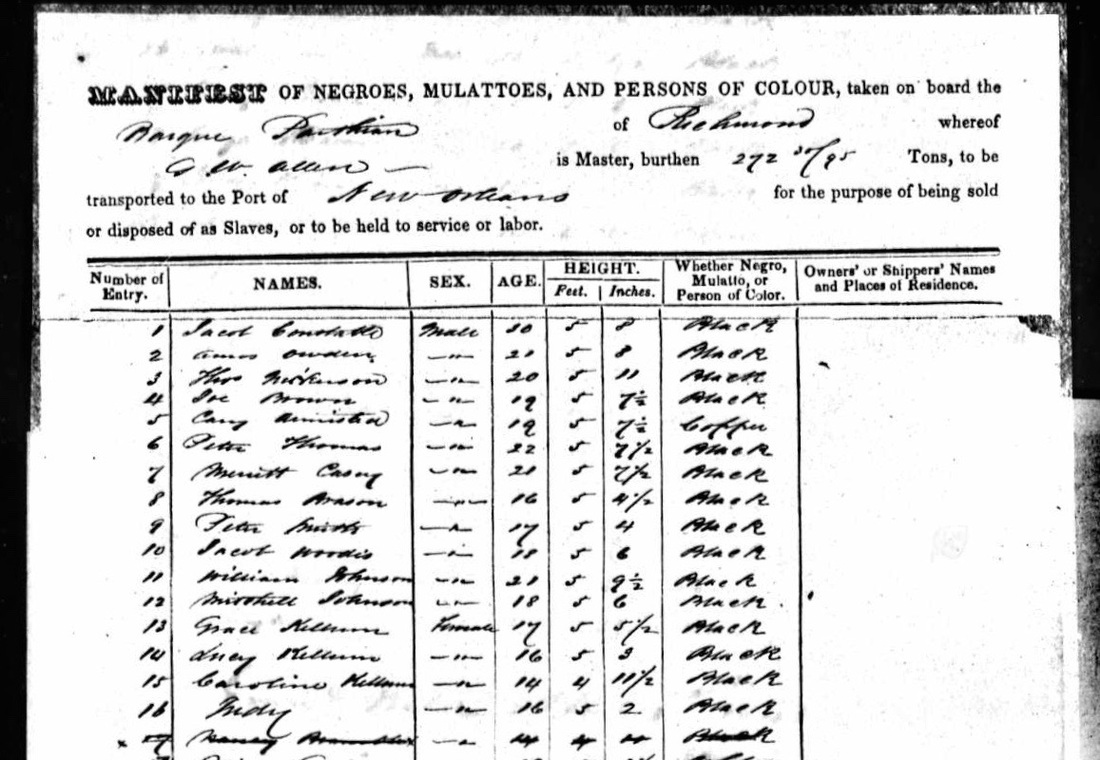 MANIFEST OF NEGROES, MULATTOES, AND PERSONS OF COLOUR, taken on board the
Barque Parthian of Richmond whereof
G. W. Allen is Master, burthen 272 30/95 Tons, to be
transported to the Port of New Orleans for the purpose of being sold
or disposed of as Slaves, or to be held to service or labor.
Number of Entry. NAMES. SEX. AGE. HEIGHT. Feet. Inches. Whether Negro, Mulatto, or Person of Color. Owners' or Shippers' Names and Places of Residence.
1 Jacob Male 5 8 Black
2 Amos Owden -"- 21 5 8 Black
3 Thos Nickenson -"- 20 5 11 Black
4 Joe Brown -"- 19 5 7½ Black
5 Cary Armisted -"- 19 5 7½ Copper
6 Peter Thomas -"- 22 5 7½ Black
7 Merritt Casey -"- 21 5 7½ Black
8 Thomas -"- 16 5 4½ Black
9 Peter Smith -"- 17 5 4 Black
10 Jacob Woodis -"- 18 5 6 Black
11 William Johnson -"- 21 5 9½ Black
12 Mitchell Johnson -"- 18 5 6 Black
13 Grace Kellum Female 17 5 5½ Black
14 Lucy Kellum -"- 16 5 3 Black
15 Caroline Kellum -"- 14 4 11½ Black
16 Judy -"- 16 5 2 Black
x 17 Nancy -"- 14 4 Black